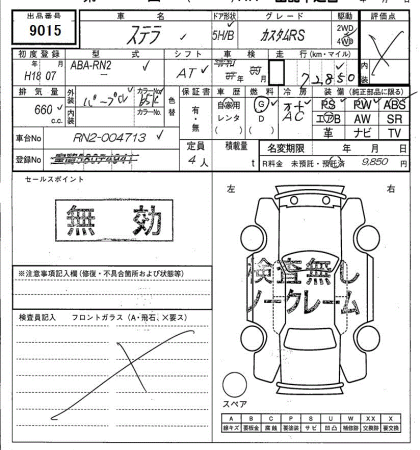 出品番号 車名 ドア形状 グレード 駆動 評価点
9015 ステラ 5H/B カスタムRS 2WD 4WD
初度登録 型式 シフト 車検 走行(km・マイル) 内装
年 月 ABA-RN2 AT 年 月 72,850
H18 07
排気量 外装 カラーNo. 色替 保証書 車歴 燃料 冷房 装備(純正部品に限る)
660 c.c. 内装 カラーNo. 有・無 自家用 レンタ G D オート AC PS PW ABS
エアB AW SR
車台No RN2-004713 定員 積載量 革 ナビ TV
登録No 4人 t 名変期限 年 月 日
R料金 未預託・預託済 9,850 円
セールスポイント
左 右
無効
検査無し
ノークレーム
※注意事項記入欄(修復・不具合箇所および状態等)
検査員記入 フロントガラス(A・飛石、×要ス)
スペア
A B C P S U W X XX X
線キズ 要板金 腐蝕 要塗装 サビ 凹凸 補修跡 交換跡 要交換